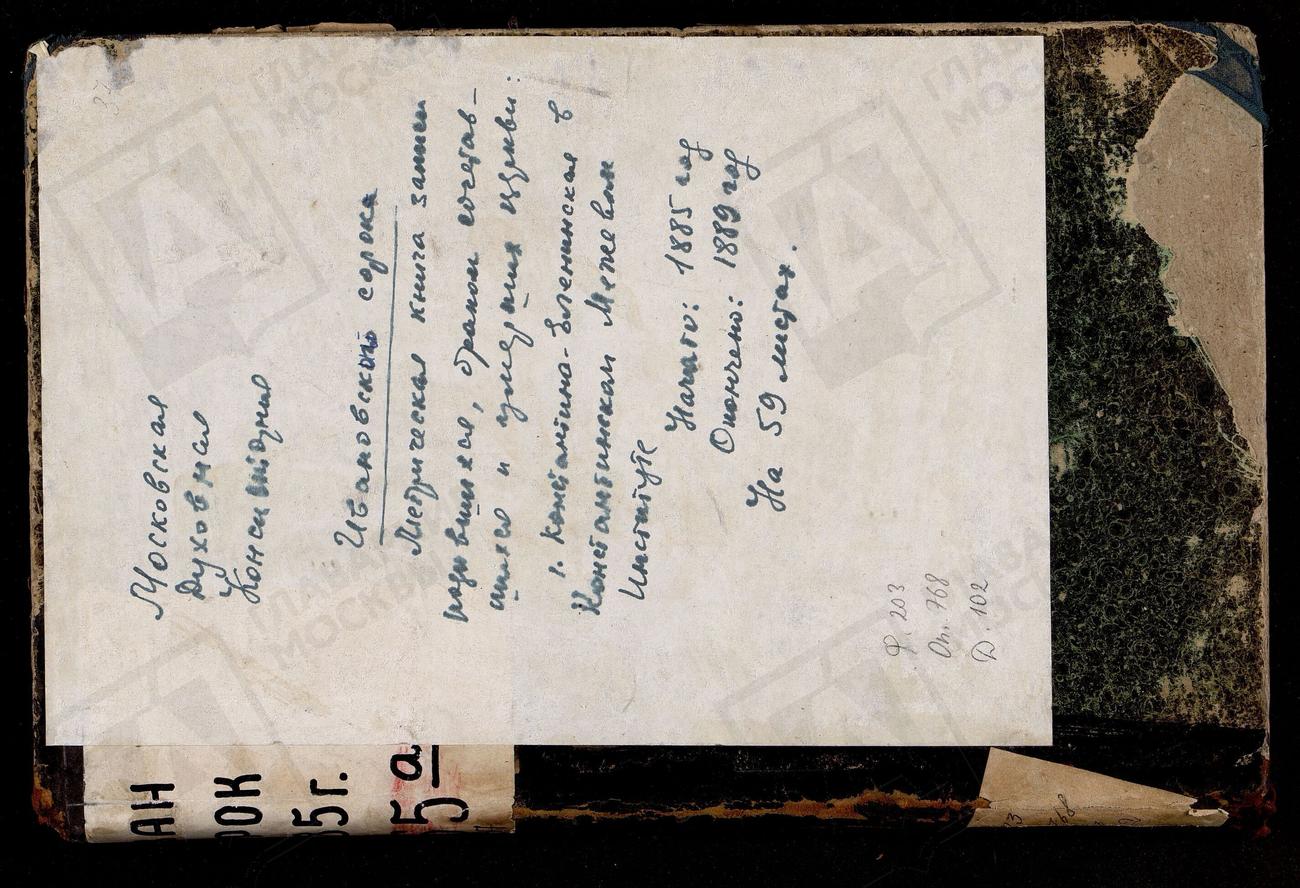 Московская
Духовная
Консистория
Ивановского сорока
Метрическая книга записи
родившихся, браком сочетав-
шихся и умерших церкви:
1. Константино-Еленинская в
Константиновском Межевом
Институте
Начато: 1885 год
Окончено: 1889 год
На 59 листах.
Ф. 203
Оп. 768
Д. 102
АН
РОК
85г.
5а
768
ГЛАВАРХИВ
МОСКВЫ